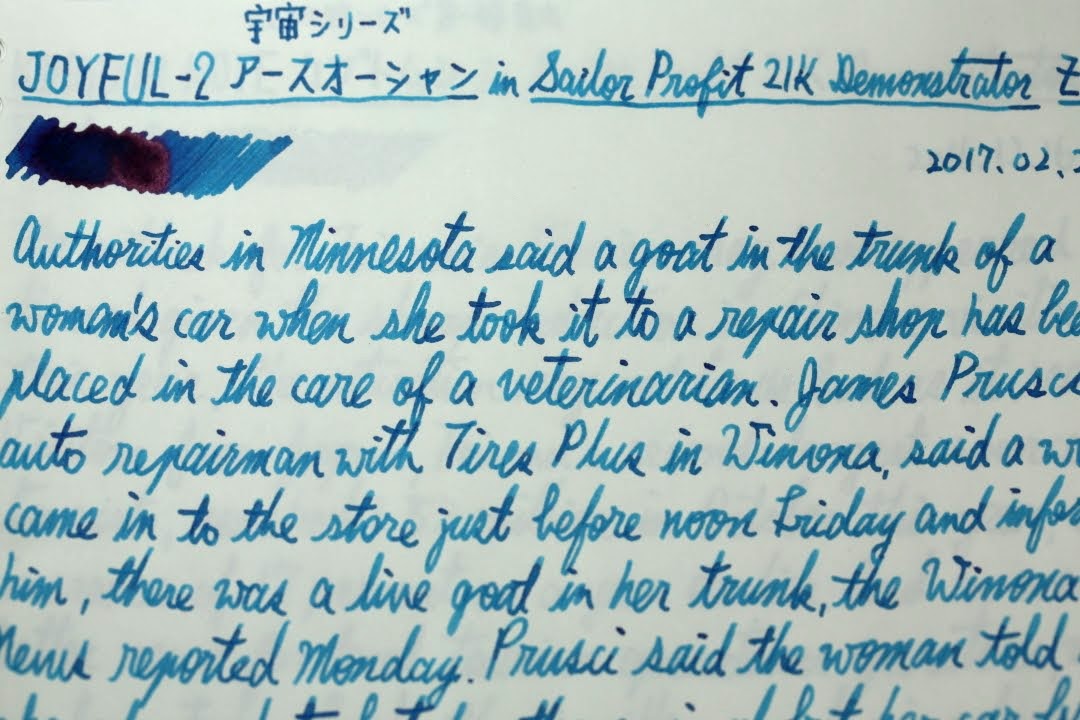 宇宙シリーズ
JOYFUL-2 アースオーシャン in Sailor Profit 21K Demonstrator Z
2017.02.2
Authorities in Minnesota said a goat in the trunk of a
woman's car when she took it to a repair shop has bee
placed in the care of a veterinarian. James Prusci
auto repairman with Tires Plus in Winona, said a w
came in to the store just before noon Friday and infor
him, there was a live goat in her trunk, the Winona
News reported Monday. Prusci said the woman told